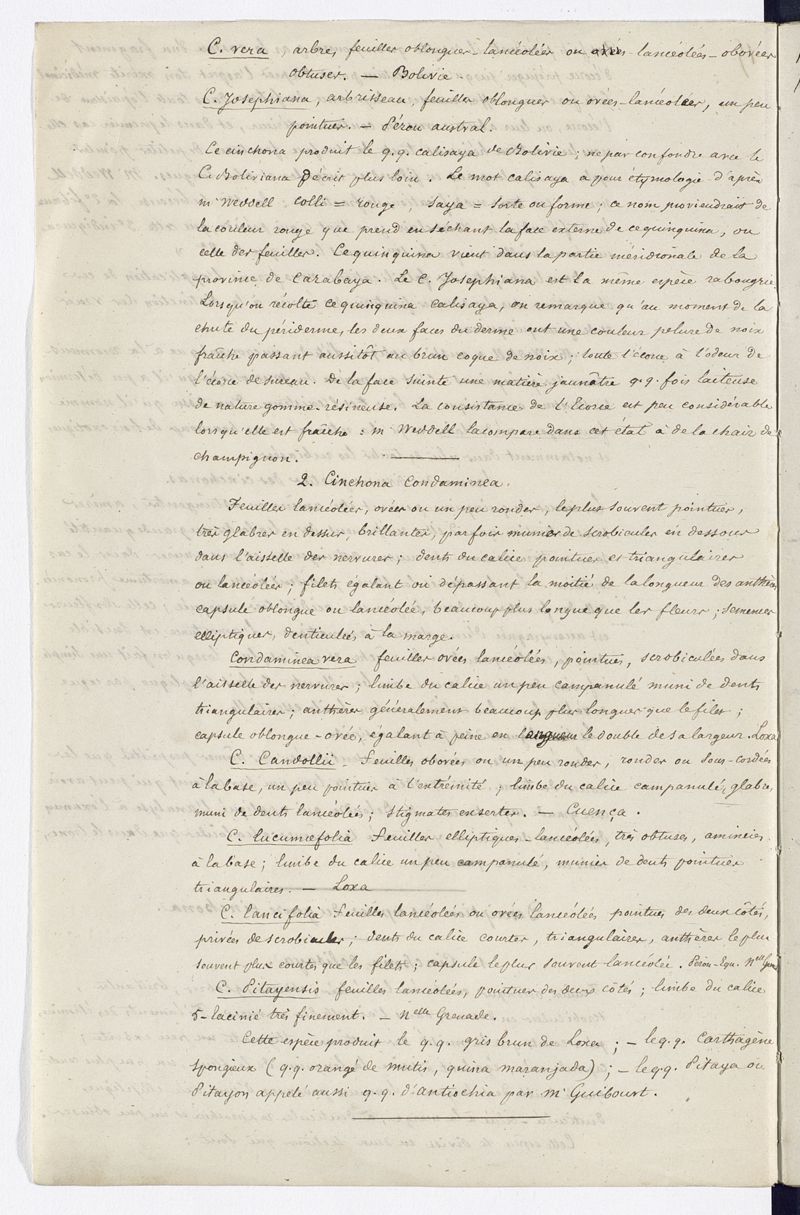 C. vera arbre, feuilles oblongues-lancéolées ou ovées-lancéolées-obovées
obtuses. — Bolivie.
C. Josephiana, arbrisseau, feuilles oblongues ou ovées-lancéolées, un peu
pointues. — Pérou austral.
Ce cinchona produit le q.q. calisaya de Bolivie ; ne pas confondre avec le
C. Boliviana décrit plus loin. Le mot calisaya a pour etymologie d'après
mr Weddell colli = rouge, saya = sorte ou forme ; ce nom proviendrait de
la couleur rouge que prend en séchant la face externe de ce quinquina, ou
celle des feuilles. Ce quinquina vient dans la partie méridionale de la
province de Carabaya. Le C. Josephiana est la même espèce rabougrie
Lorsqu'on récolte ce quinquina calisaya, on remarque qu'au moment de la
chute du périderme, les deux faces du derme ont une couleur pelure de noix
fraîche passant aussitôt au brun coque de noix ; toute l'écorce a l'odeur de
l'écorce de sureau. De la face suinte une matière jaunâtre q.q. fois laiteuse
de nature gomme-résineuse. La consistance de l'Ecorce est peu considérable
lorsqu'elle est fraîche : mr Weddell la compare dans cet état à de la chair de
champignon.
2. Cinchona Condaminea.
Feuilles lancéolées, ovées ou un peu rondes, le plus souvent pointues,
très glabres en dessus, brillantes, parfois munies de scrobicules en dessous
dans l'aisselle des nervures ; dents du calice pointues et triangulaires
ou lancéolées ; filets égalant ou dépassant la moitié de la longueur des anthères
capsule oblongue ou lancéolée, beaucoup plus longue que les fleurs ; semences
elliptiques, denticulées à la marge.
Condaminea vera feuilles ovées lancéolées, pointues, scrobiculées dans
l'aisselle des nervures ; limbe du calice un peu campanulé muni de dents
triangulaires ; anthères généralement beaucoup plus longues que le filet ;
capsule oblongue-ovée, égalant à peine en longueur le double de sa largeur. Loxa
C. Candollii. Feuilles obovées ou un peu rondes, rondes ou sous-cordées
à la base, un peu pointues à l'extrémité ; limbe du calice campanulé, glabre,
muni de dents lancéolées ; stigmates enserrés. — Cuença.
C. lucumæfolia Feuilles elliptiques-lancéolées, très obtuses, amincies
à la base ; limbe du calice un peu campanulé, munies de dents pointues
triangulaires. — Loxa
C. lancifolia Feuilles lancéolées ou ovées lancéolées pointues des deux côtés,
privées de scrobicules ; dents du calice courtes, triangulaires, anthères le plus
souvent plus courtes que les filets ; capsule le plus souvent lancéolée. Pérou-Equ. Nelle Gren.
C. Pitayensis feuilles lancéolées, pointues des deux côtés ; limbe du calice
5-lacinié très finement. — Nelle Grenade.
Cette espèce produit le q.q. gris brun de Loxa ; — le q.q. Carthagène
spongieux (q.q. orangé de mutis, quina maranjada) ; — le q.q. Pitaya ou
Pitayon appelé aussi q.q. d'antiochia par mr Guibourt.